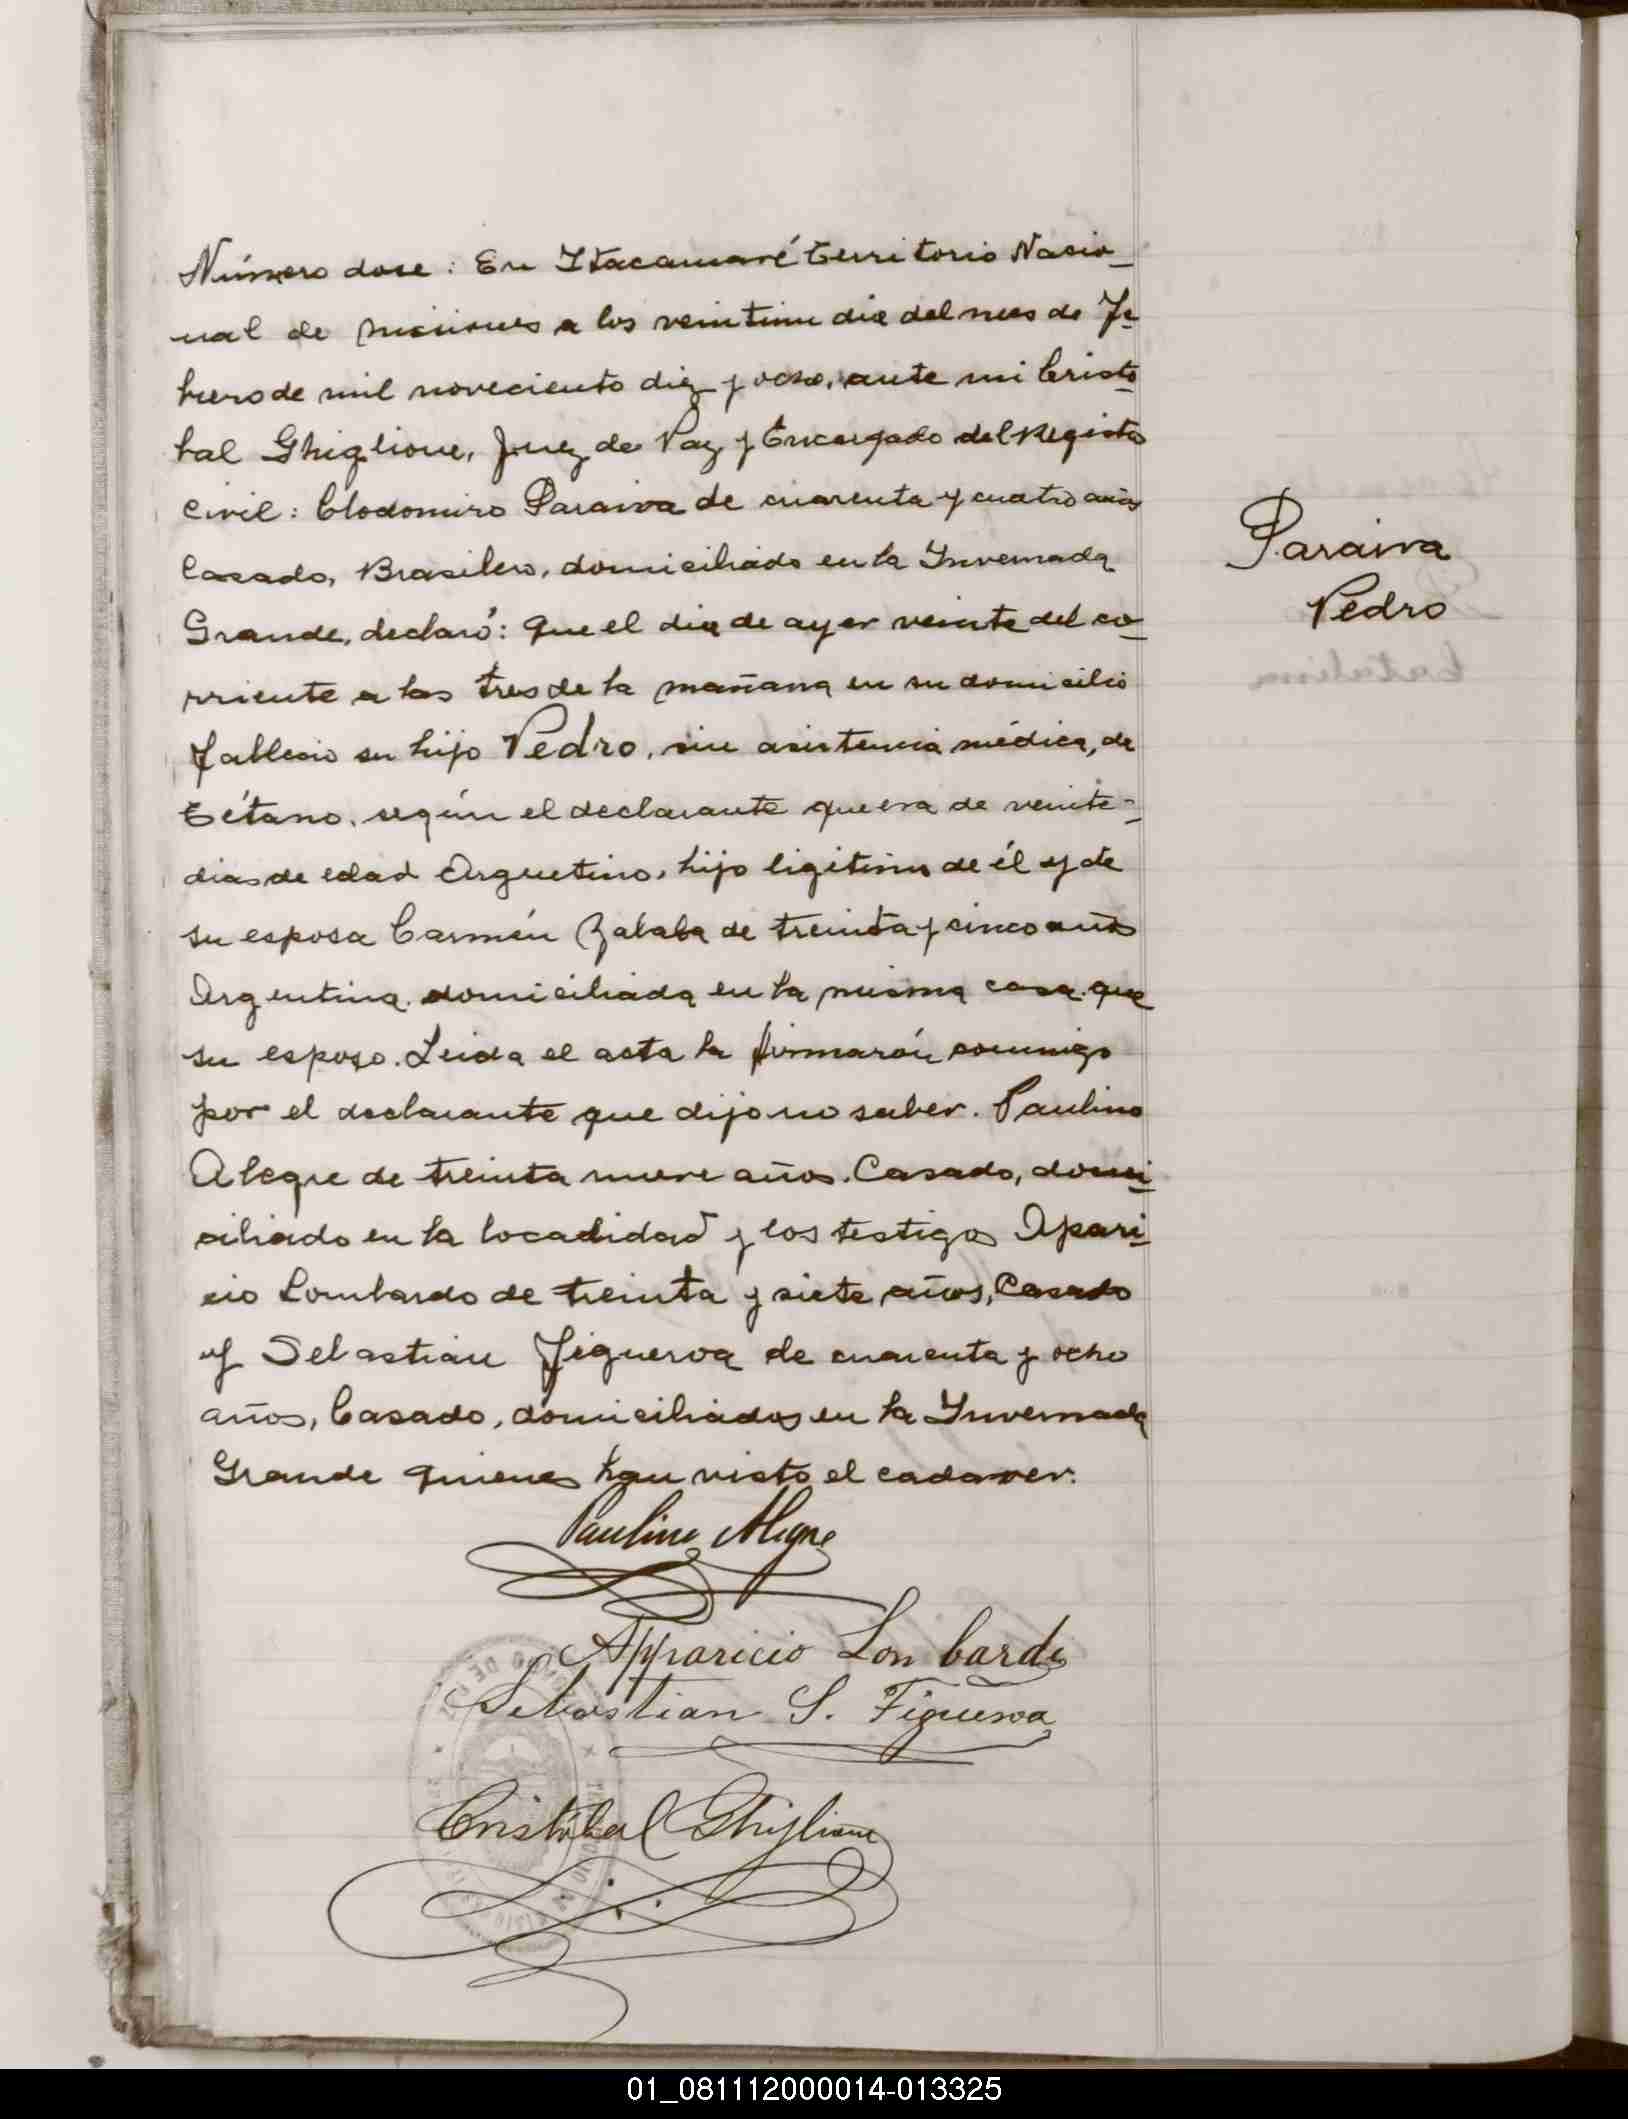 Número dose: En Itacaruaré territorio Nacio_
nal de misiones a los veintiun dia del mes de Fe
brero de mil noveciento diez y ocho, ante mi Cristo
bal Ghiglione, Juez de Paz y Encargado del Registro
Civil: Clodomiro Paraiva de cuarenta y cuatro años
Casado, Brasilero, domiciliado en la Invernada
Grande, declaró: que el dia de ayer veinte del co_
rriente a las tres de la mañana en su domicilio
fallecio su hijo Pedro, sin asistencia médica, de
tétano, según el declarante que era de veinte-
dias de edad Argentino, hijo ligitimo de él y de
su esposa Carmén Zabala de treinta y cinco años
Argentina. domiciliada en la misma casa que
su esposo. Leida el acta la firmarón conmigo
por el declarante que dijo no saber. Paulino
Alegre de treinta nueve años. Casado, domi_
ciliado en la locadidad y los testigos Apari_
cio Lombardo de treinta y siete años, Casado
y Sebastian Figueroa de cuarenta y ocho
años, Casado, domiciliados en la Invernada
Grande quienes han visto el cadaver.
Paraiva
Pedro
Paulino Alegre
Apparicio Lombardo
Sebastian S. Figueroa
Cristobal Ghiglione
01_081112000014-013325